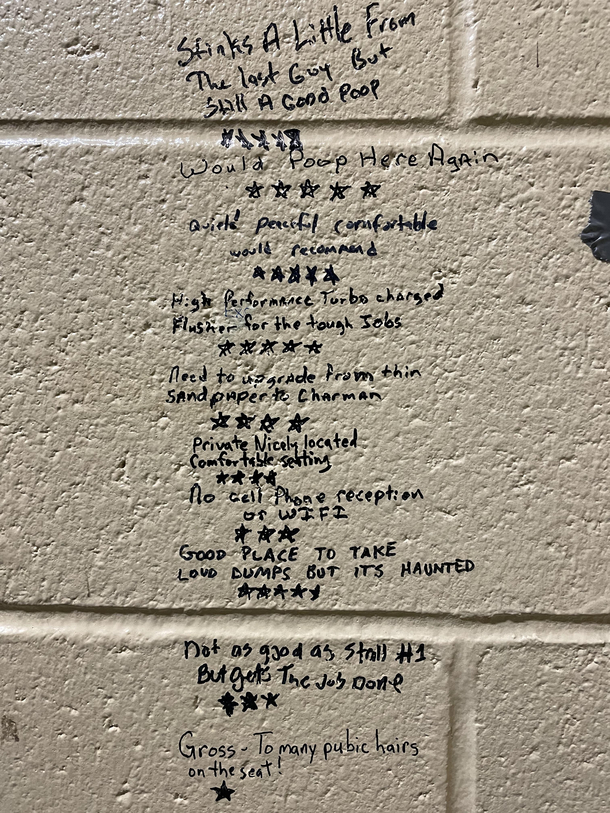 Stinks A Little From
The last Guy But
Still A Good Poop
★★★★★
Would Poop Here Again
★★★★★
Quiet! peaceful comfortable
would recommend
★★★★★
High Performance Turbo charged
Flusher for the tough Jobs
★★★★★
Need to upgrade from thin
SANdpaper to Charman
★★★★
Private Nicely located
Comfortable setting
★★★★
No cell Phone reception
or WIFI
★★★
GOOD PLACE TO TAKE
LOUD DUMPS BUT IT'S HAUNTED
★★★★★
Not as good as Stall #1
But gets The Job Done
★★★
Gross - To many pubic hairs
on the seat!
★